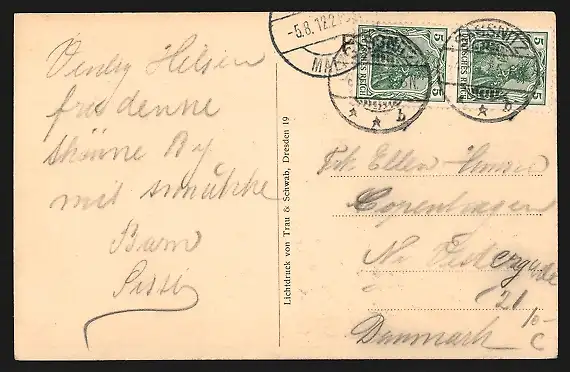 Venlig Hilsen
fra denne
skönne By
mit smukke
Barn
Sissi
Lichtdruck von Trau & Schwab, Dresden 19
-5.8.12.2
MA
5
DEUTSCHES REICH
5
5
DEUTSCHES REICH
5
b
b
Frk Ellen Hansen
Copenhagen
Ny Østergade
21
Danmark